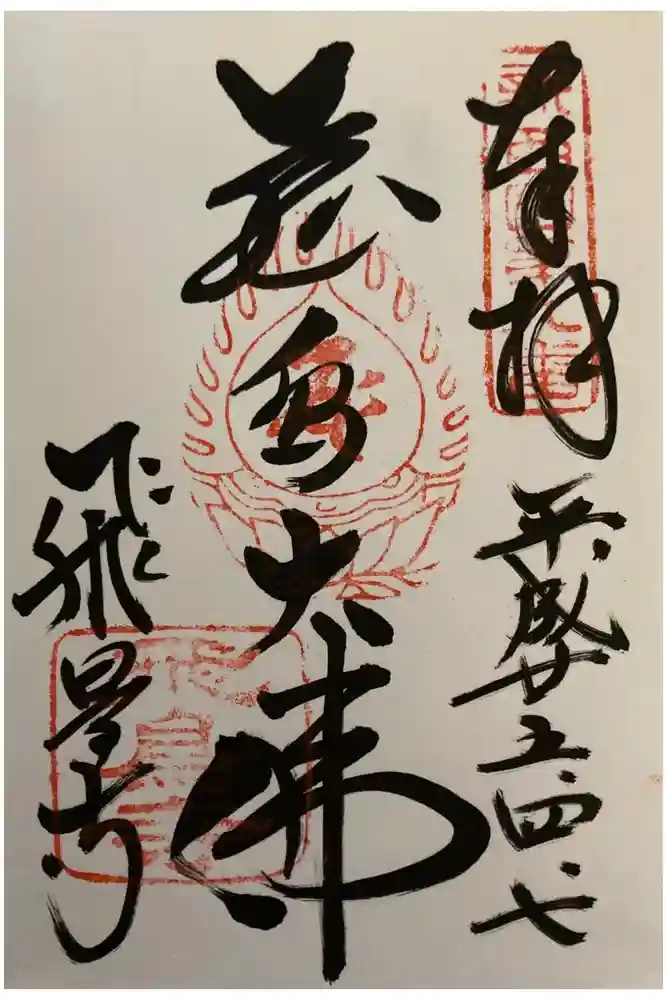 奉拝
平成廿五.四.七
飛鳥大佛
飛鳥寺